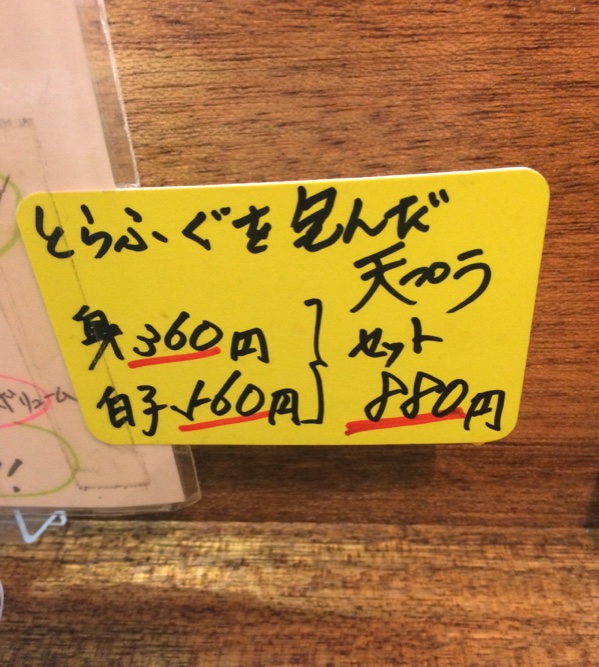 とらふぐを包んだ
天プラ
身360円
白子560円
セット
880円
ボリューム
!